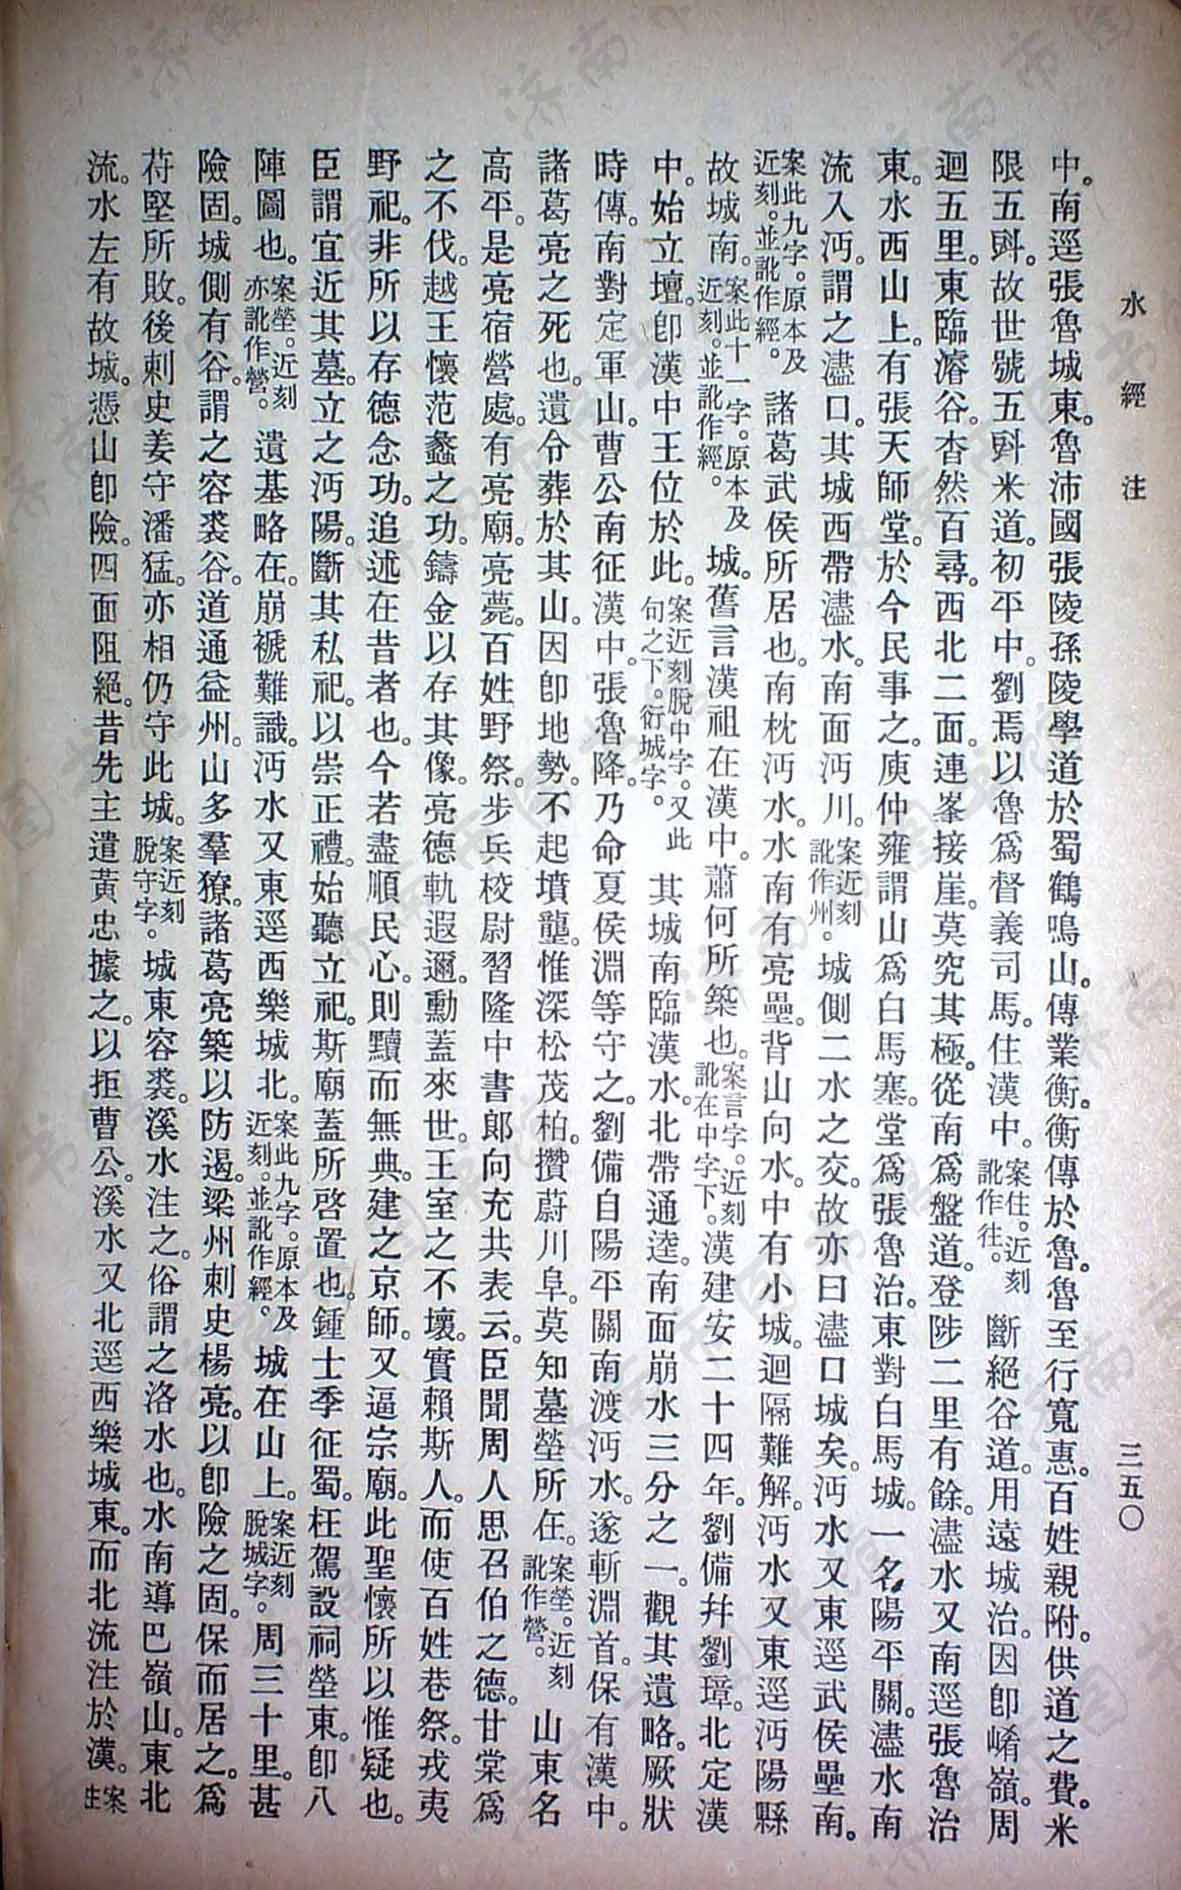 水經注
三五〇
中。南逕張魯城東。魯沛國張陵孫。陵學道於蜀鶴鳴山。傳業衡。衡傳於魯。魯至行寬惠。百姓親附。供道之費。米
限五㪷。故世號五㪷米道。初平中。劉焉以魯爲督義司馬。住漢中。案住。近刻訛作往。斷絕谷道。用遠城治。因卽崤嶺。周
迴五里。東臨濬谷。杳然百尋。西北二面。連峯接崖。莫究其極。從南爲盤道。登陟二里有餘。濜水又南逕張魯治
東。水西山上。有張天師堂。於今民事之。庾仲雍謂山爲白馬塞。堂爲張魯治。東對白馬城。一名陽平關。濜水南
流入沔。謂之濜口。其城西帶濜水。南面沔川。案近刻訛作州。城側二水之交。故亦曰濜口城矣。沔水又東逕武侯壘南。
案此九字。原本及近刻。並訛作經。諸葛武侯所居也。南枕沔水。水南有亮壘。背山向水。中有小城。迴隔難解。沔水又東逕沔陽縣
故城南。案此十一字。原本及近刻。並訛作經。城。舊言漢祖在漢中。蕭何所築也。案言字。近刻訛在中字下。漢建安二十四年。劉備幷劉璋。北定漢
中。始立壇。卽漢中王位於此。案近刻脫中字。又此句之下。衍城字。其城南臨漢水。北帶通逵。南面崩水三分之一。觀其遺略。厥狀
時傳。南對定軍山。曹公南征漢中。張魯降。乃命夏侯淵等守之。劉備自陽平關南渡沔水。遂斬淵首。保有漢中。
諸葛亮之死也。遺令葬於其山。因卽地勢。不起墳壟。惟深松茂柏。攢蔚川阜。莫知墓塋所在。案塋。近刻訛作營。山東名
高平。是亮宿營處。有亮廟。亮薨。百姓野祭。步兵校尉習隆中書郎向充共表云。臣聞周人思召伯之德。甘棠爲
之不伐。越王懷范蠡之功。鑄金以存其像。亮德軌遐邇。勳蓋來世。王室之不壞。實賴斯人。而使百姓巷祭。戎夷
野祀。非所以存德念功。追述在昔者也。今若盡順民心。則黷而無典。建之京師。又逼宗廟。此聖懷所以惟疑也。
臣謂宜近其墓。立之沔陽。斷其私祀。以崇正禮。始聽立祀。斯廟蓋所啓置也。鍾士季征蜀。枉駕設祠塋東。卽八
陣圖也。案塋。近刻亦訛作營。遺基略在。崩褫難識。沔水又東逕西樂城北。案此九字。原本及近刻。並訛作經。城在山上。案近刻脫城字。周三十里。甚
險固。城側有谷。謂之容裘谷。道通益州。山多羣獠。諸葛亮築以防遏。梁州刺史楊亮。以卽險之固。保而居之。爲
苻堅所敗。後刺史姜守潘猛。亦相仍守此城。案近刻脫守字。城東容裘。溪水注之。俗謂之洛水也。水南導巴嶺山。東北
流。水左有故城。憑山卽險。四面阻絕。昔先主遣黃忠據之。以拒曹公。溪水又北逕西樂城東。而北流注於漢。案注